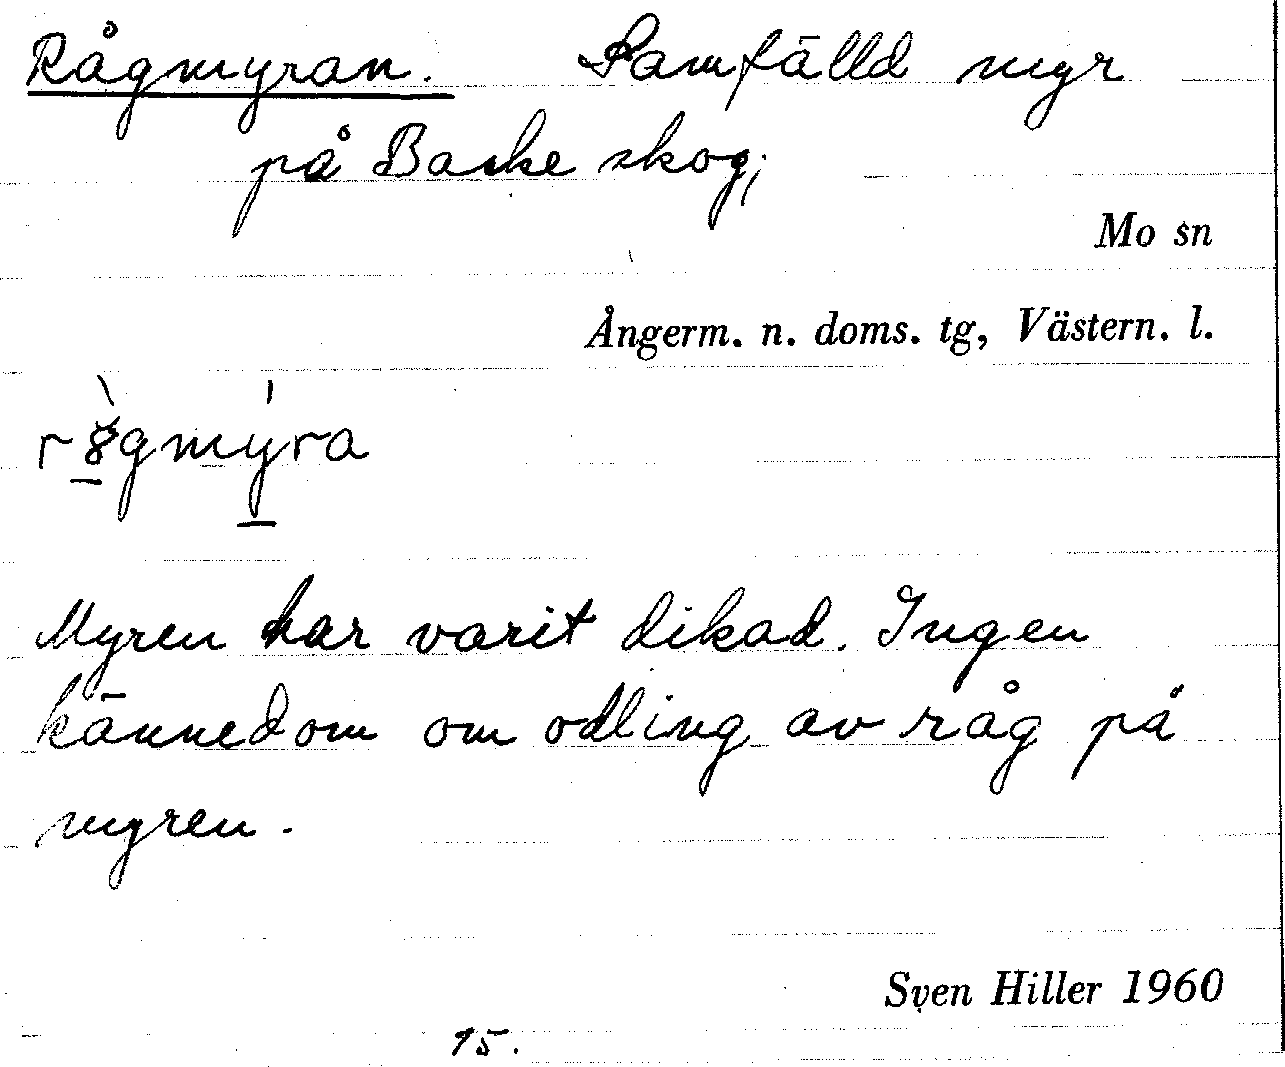 Rågmyran. Samfälld myr
på Backe skog;
Mo sn
Ångerm. n. doms. tg, Västern. l.
Myren har varit dikad. Ingen
kännedom om odling av råg på
myren.
Sven Hiller 1960
15.